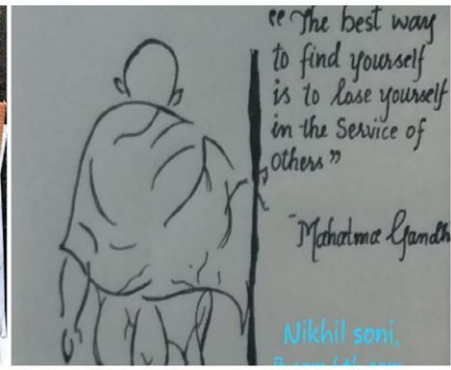 “The best way
to find yourself
is to lose yourself
in the Service of
others”
Mahatma Gandh
Nikhil soni.